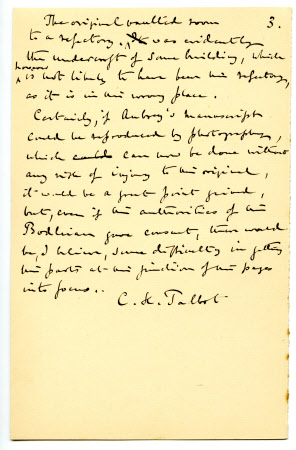 The original vaulted room 3.
to a refectory. It was evidently
the undercroft of some building, which
however is not likely to have been the refectory,
as it is in the wrong place.
Certainly, if Aubrey's manuscripts
could be reproduced by photography,
which could can now be done without
any risk of injury to the original,
it would be a great point gained,
but, even if the authorities of the
Bodleian gave consent, there would
be, I believe, some difficulty in getting
the parts at the junction of the pages
into focus..
C. H. Talbot